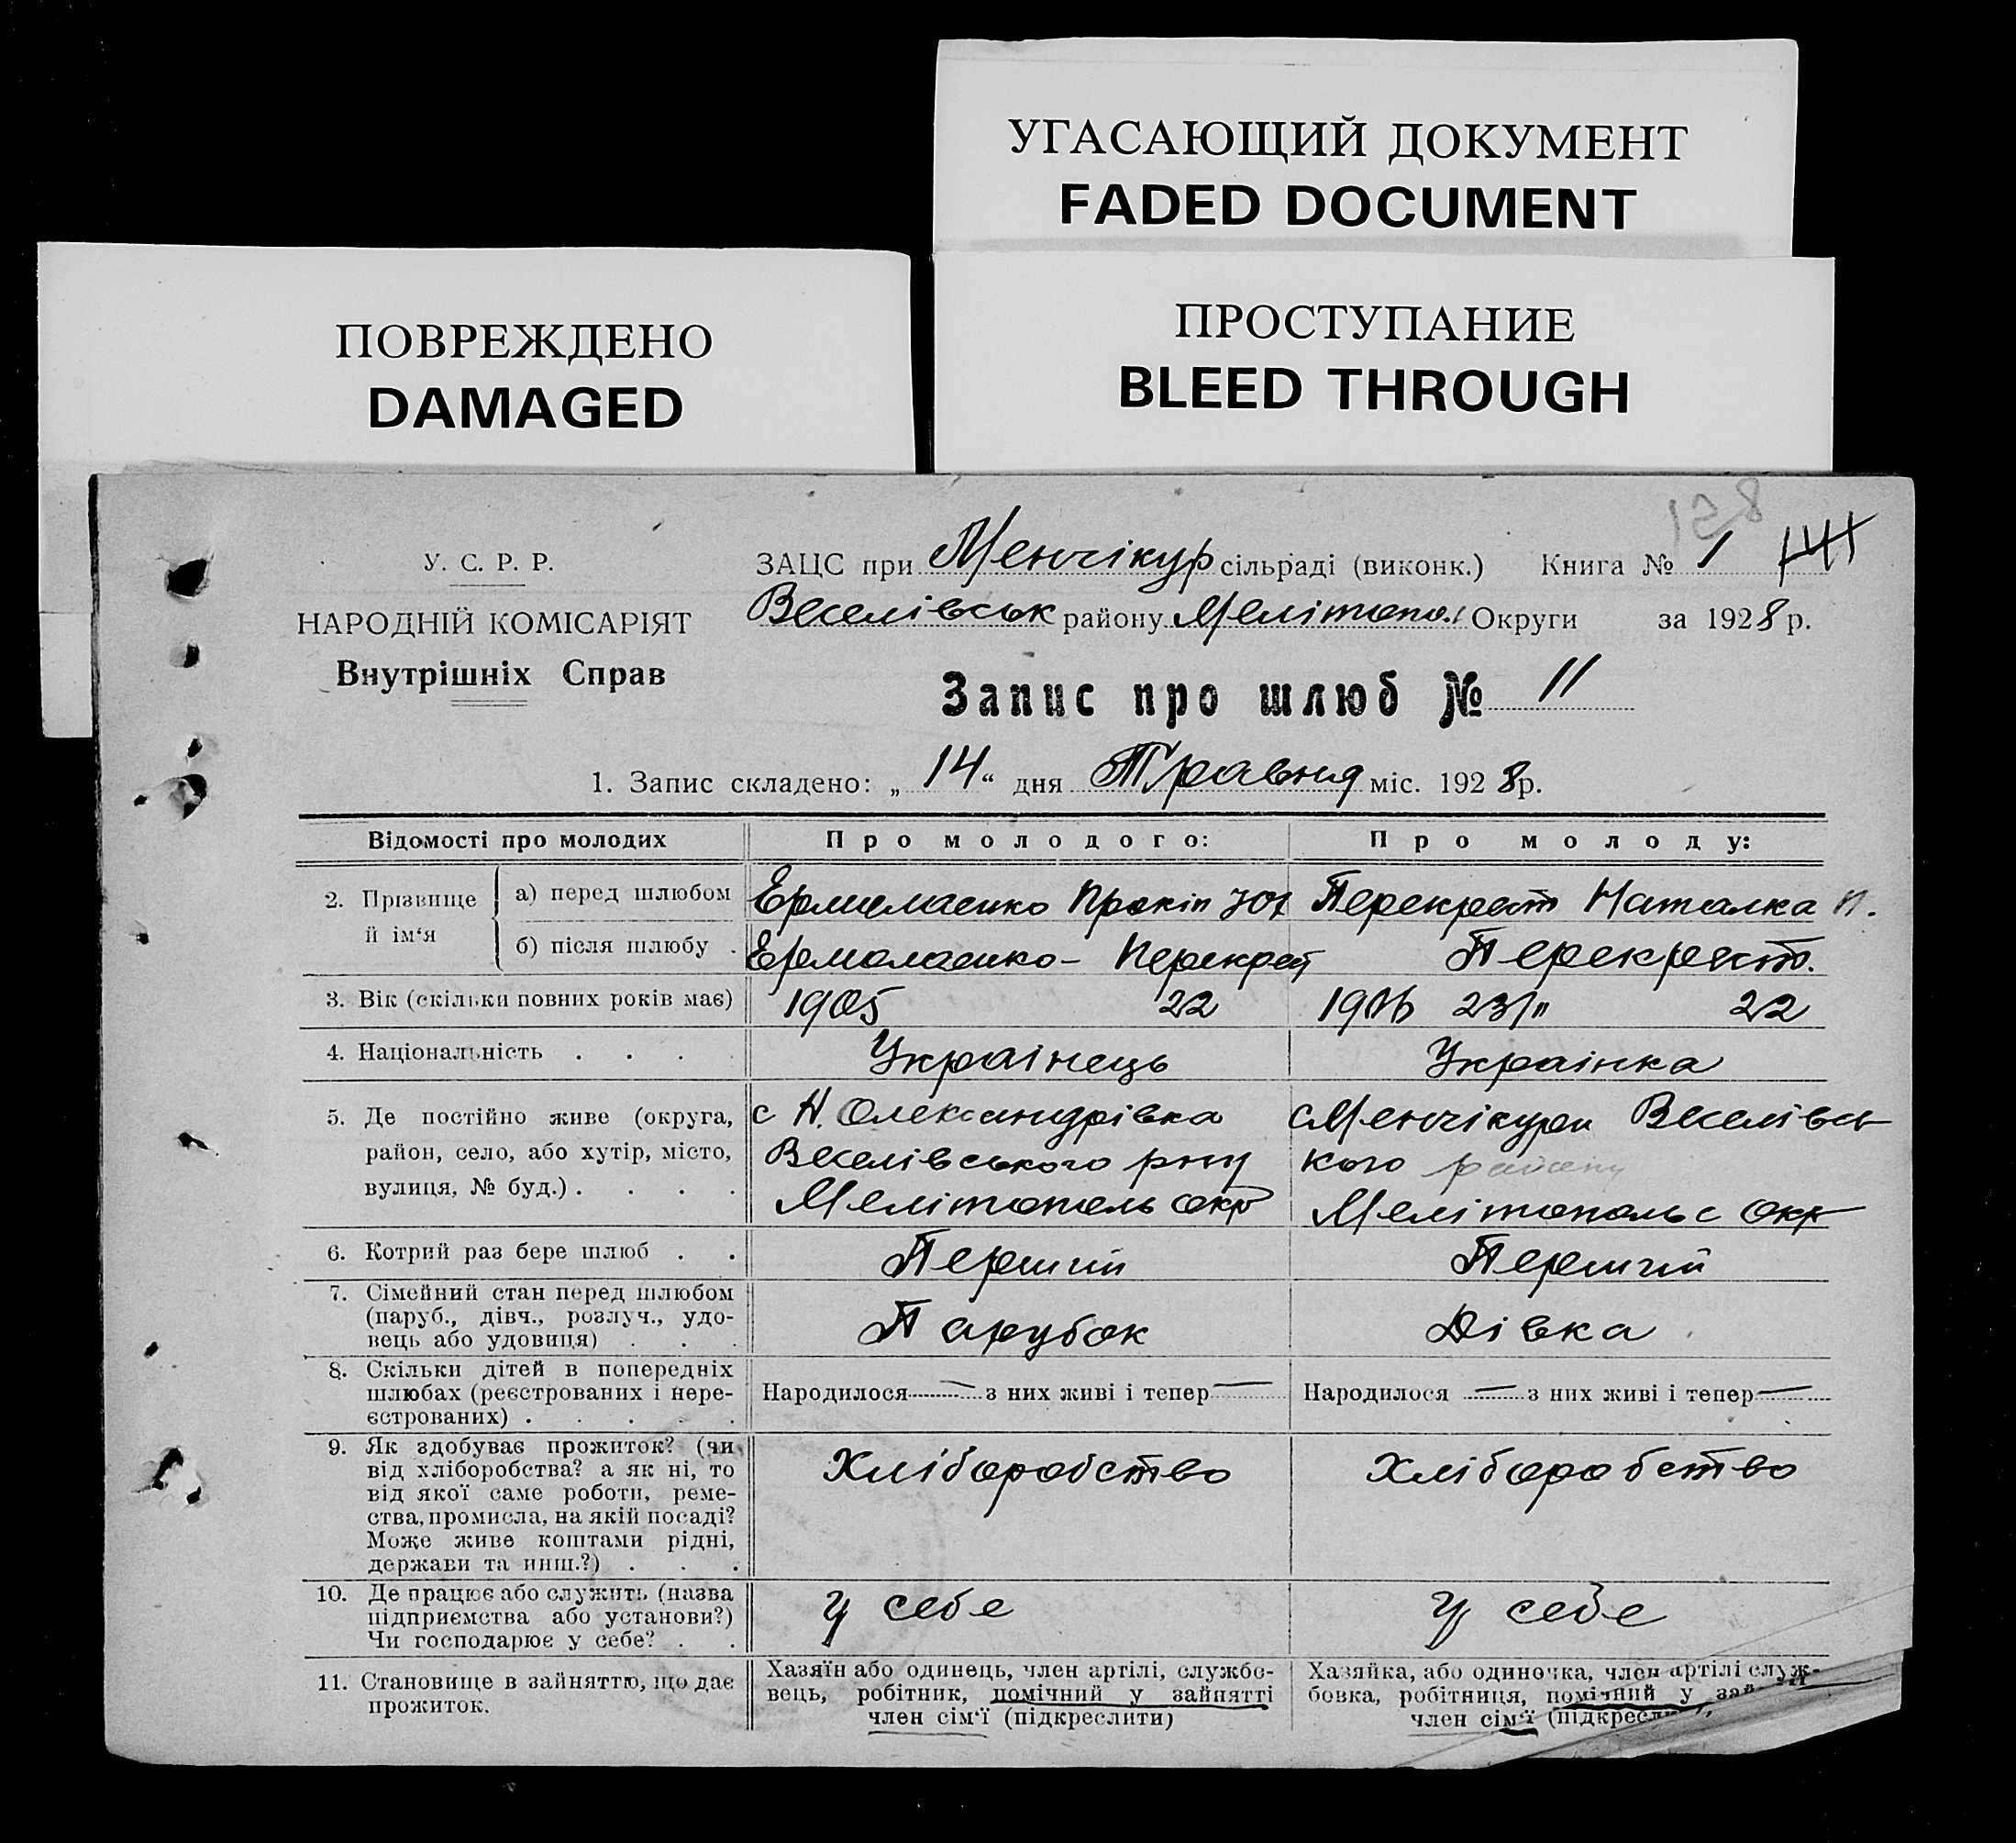 УГАСАЮЩИЙ ДОКУМЕНТ
FADED DOCUMENT
ПОВРЕЖДЕНО
DAMAGED
ПРОСТУПАНИЕ
BLEED THROUGH
158
У. С. Р. Р.
НАРОДНІЙ КОМІСАРІЯТ
Внутрішніх Справ
ЗАЦС при Менчікур сільраді (виконк.) Книга № 1
Веселівськ району Мелітопол Округи за 1928 р.
Запис про шлюб № 11
1. Запис складено: „ 14 “ дня Травня міс. 1928 р.
Відомості про молодих Про молодого: Про молоду:
2. Прізвище й ім‘я
а) перед шлюбом Ермолаенко Прокіп Перекрест Наталка П.
б) після шлюбу . Ермолаенко- Перекрест Перекрест.
3. Вік (скільки повних років має) 1905 22 1906 22
4. Національність . . . . Украінець Украінка
5. Де постійно живе (округа,
район, село, або хутір, місто,
вулиця, № буд.) . . . .
с Н. Олександрівка
Веселівського рну
Мелітополь окр
с Менчікури Веселівсь
кого району
Мелітопольс Окр
6. Котрий раз бере шлюб . . Перший Перший
7. Сімейний стан перед шлюбом
(паруб., дівч., розлуч., удо-
вець або удовиця) . . . Парубок Дівка
8. Скільки дітей в попередніх
шлюбах (реєстрованих і нере-
єстрованих) . . . . .
Народилося — з них живі і тепер — Народилося — з них живі і тепер —
9. Як здобуває прожиток? (чи
від хліборобства? а як ні, то
від якої саме роботи, реме-
ства, промисла, на якій посаді?
Може живе коштами рідні,
держави та инш.?) . . .
Хліборобство Хліборобство
10. Де працює або служить (назва
підприємства або установи?)
Чи господарює у себе? . .
У себе У себе
11. Становище в зайняттю, що дає
прожиток.
Хазяїн або одинець, член артілі, службо-
вець, робітник, помічний у зайнятті
член сім‘ї (підкреслити)
Хазяйка, або одиночка, член артілі служ-
бовка, робітниця, помічний у
член сім‘ї